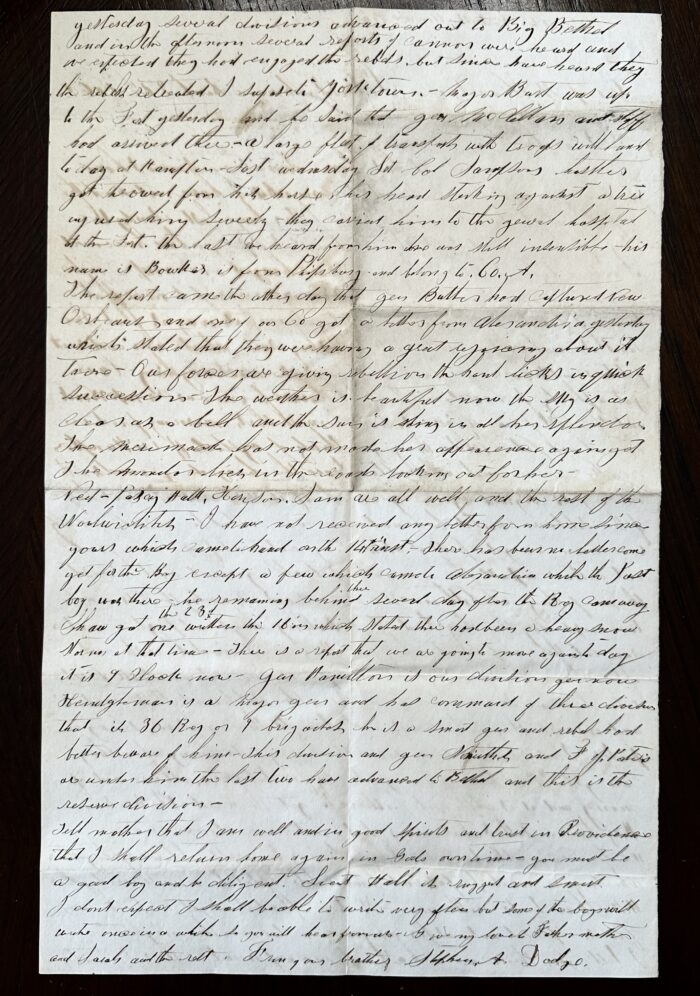 yesterday several divisions advanced out to Big Bethel
and in the afternoon several reports of cannon were heard and
we expected they had engaged the rebels but since have heard they
the rebels retreated I suppose to Yorktown - Major Burt was up
to the Fort yesterday and he said that gen McClellan and staff
had arrived there - a large fleet of transports with troops will land
to day at Hampton - Last wednesday Let Col Sampsons hostler
got throwed from his horse his head striking against a tree
injured him severely - they carried him to the general hospital
at the Fort. the last we heard from him he was still insensible - his
name is Bowker is from Phipsburg and belong to Co. A.
The report came the other day that gen Butler had captured New
Orleans and one of our Co got a letter from Alexandria yesterday
which stated that they were having a great rejoicing about it
there - Our forces are giving rebellion the hard licks in quick
succession - The weather is beautiful now the sky is as
clear as a bell and the sun is shing in all her splendor
The Merrimack has not made her appearance again yet
The Monitor lies in the roads looking out for her -
Hall, I am are all well and the rest of the
Woolwichites - I have not received any letter from home since
yours which came to hand on the 14th inst - there has been no letter come
yet for the Reg except a few which came to Alexandria while the Post
boy was there - he remaining behind there several day after the Reg came away
the 23d
I have got one written the 16 in which stated there had been a heavy snow
storm at that time - There is a report that we are going to move again to day
it is 9 Clock now - Gen Hamilton is our division gen now
Heintzleman is a Major gen and has command of three division
that is 36 Reg or 9 brigades he is a smart gen and rebel had
better beware of him - this division and gen Smiths and F J Porters
are under him the last two have advanced to Bethel and this is the
reserve division -
Tell mother that I am well and in good spirits and trust in Providence
that I shall return home again in Gods own time - you must be
a good boy and be diligent. Hall is rugged and smart
I dont expect I shall be able to write very often but some of the boys will
write once in a while so you will hear from us - Give my love to Father mother
and Sarah and the rest - From your brother Stephen A Dodge.